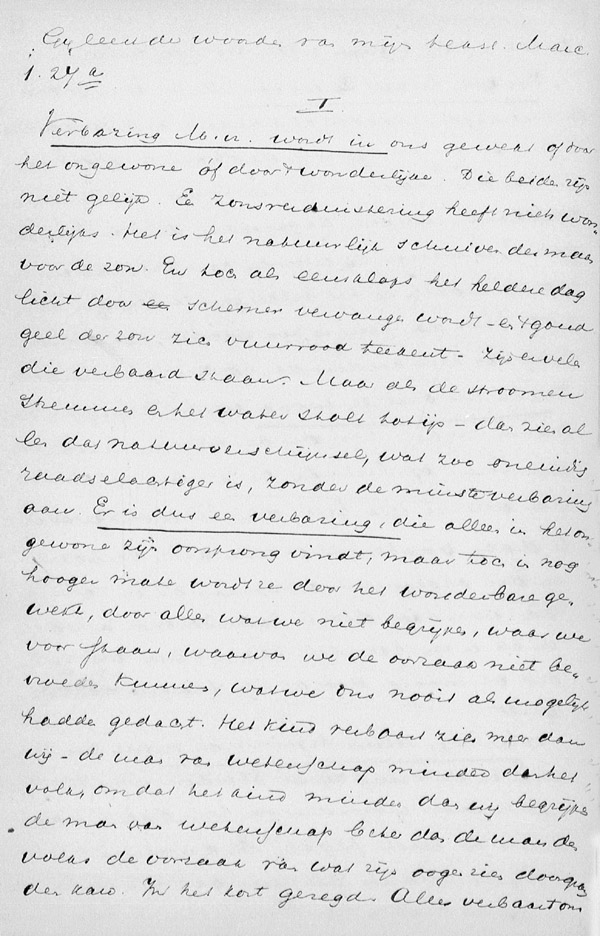 Gij leende woorden van mijn tekst. Marc.
1. 27a
I
Verbazing M. H. wordt in ons gewekt of door
het ongewone óf door 't wonderlijke. Die beide zijn
niet gelijk. Een zonsverduistering heeft niets won-
derlijks. Het is het natuurlijk schuiven der maan
voor de zon. En toch als eensklaps het heldere dag
licht door een schemer vervangen wordt – en 't goud
geel der zon zich vuurrood teekent – zijn er velen
die verbaasd staan. Maar als de stroomen
stremmen en het water stolt tot ijs – dan zien al
len dat natuurverschijnsel, wat zoo oneindig
raadselachtiger is, zonder de minste verbazing
aan. Er is dus een verbazing, die alleen in het on-
gewone zijn oorsprong vindt, maar toch in nog
hooger mate wordt ze door het wonderbare ge-
wekt, door alles wat we niet begrijpen, waar we
voor staan, waarvan we de oorzaak niet be-
vroeden kunnen, wat we ons nooit als mogelijk
hadde gedacht. Het kind verbaast zich meer dan
wij – de man van wetenschap minder dan het
volk, omdat het kind minder dan wij begrijpt
de man van wetenschap beter dan de man des
volks de oorzaak van wat zijn oogen zien doorgron
den kan. In het kort gezegd. Alles verbaast ons